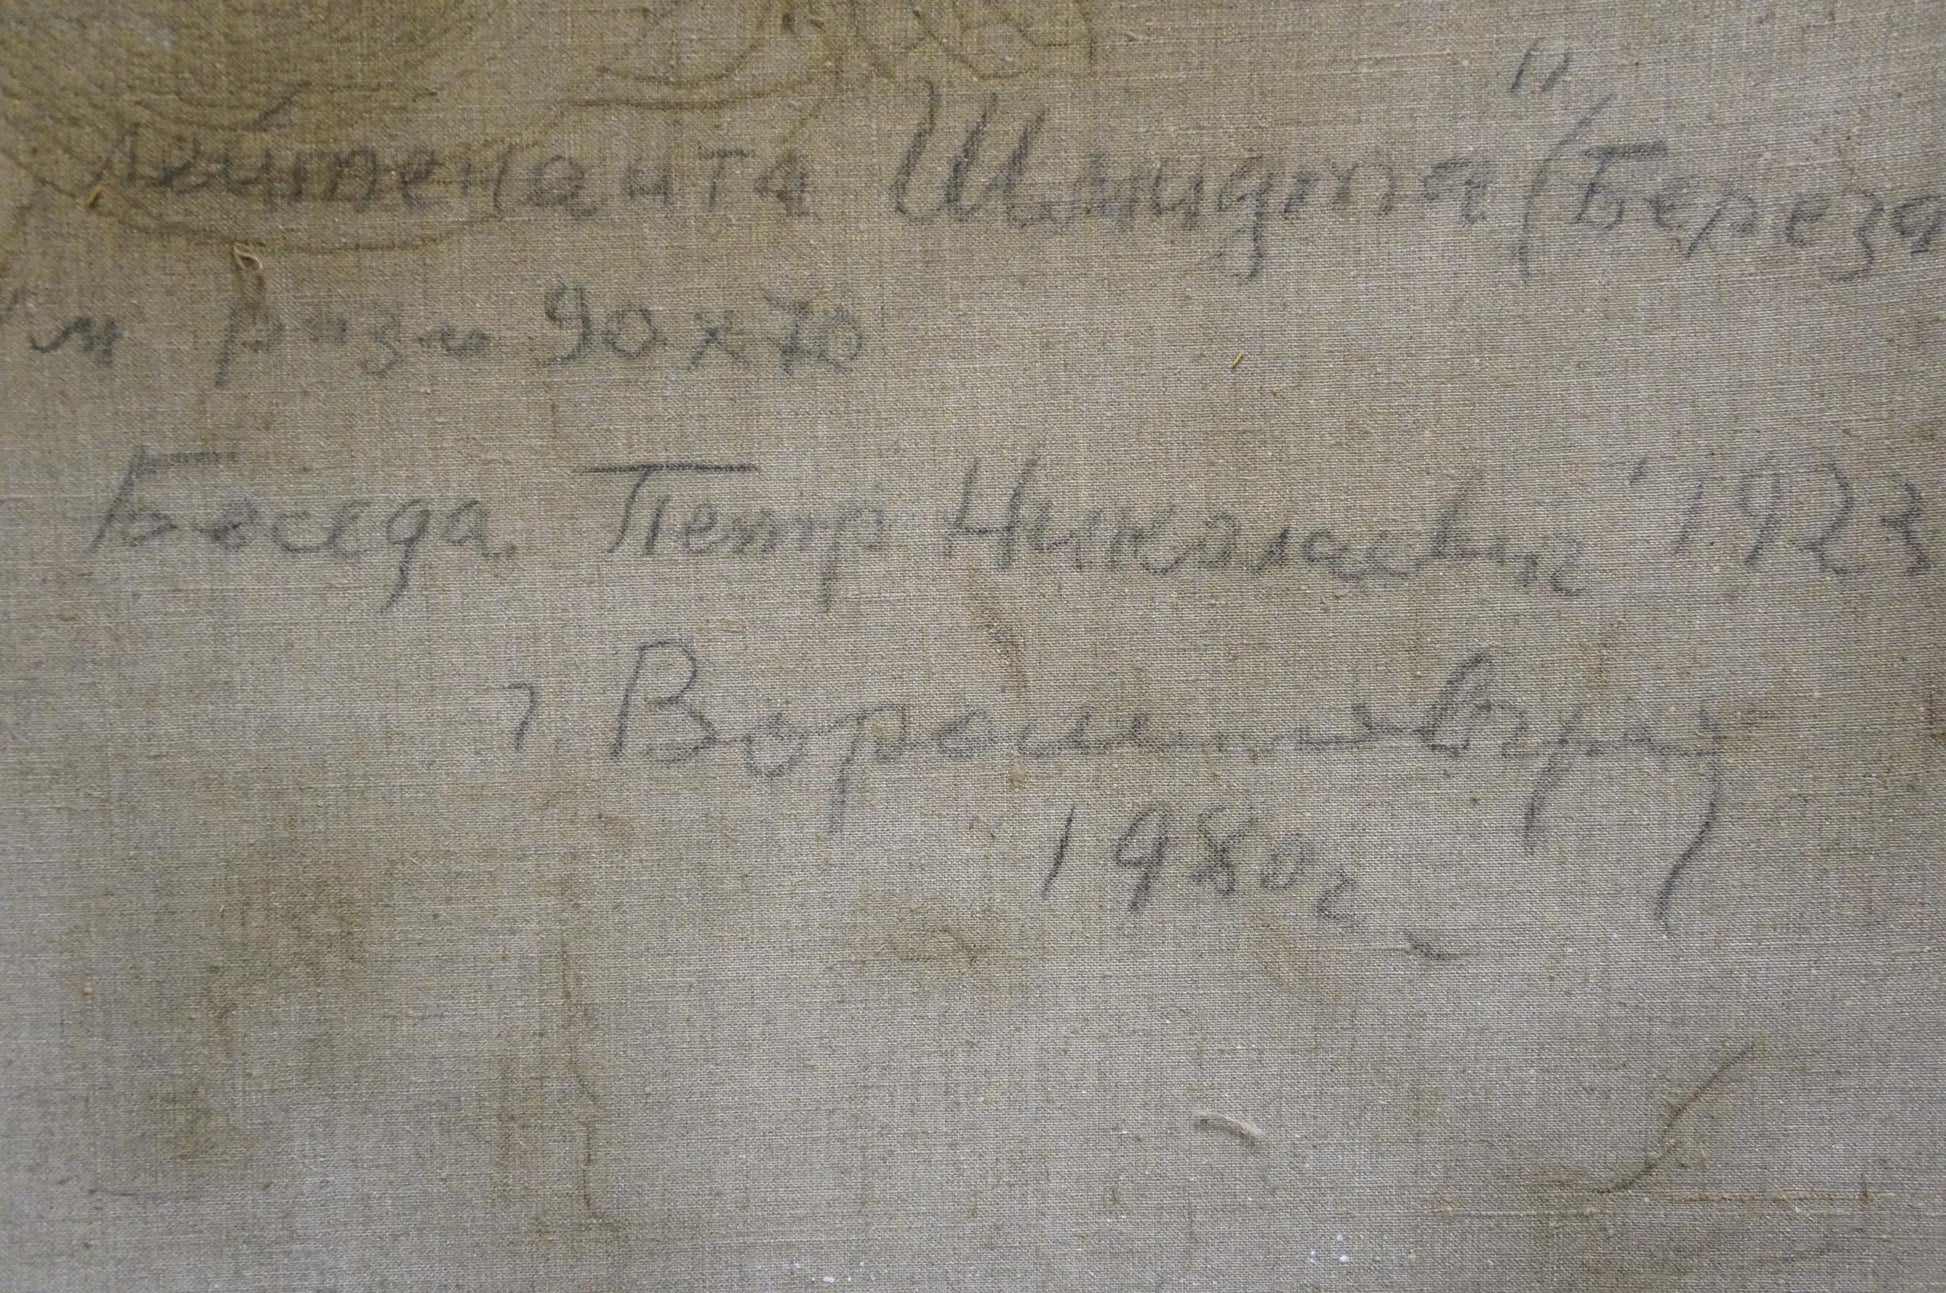 Лейтенанта Шмидта" (Береза
м разм 90х70
Беседа Петр Николаевич 1923
г. Ворошиловград
1980г.